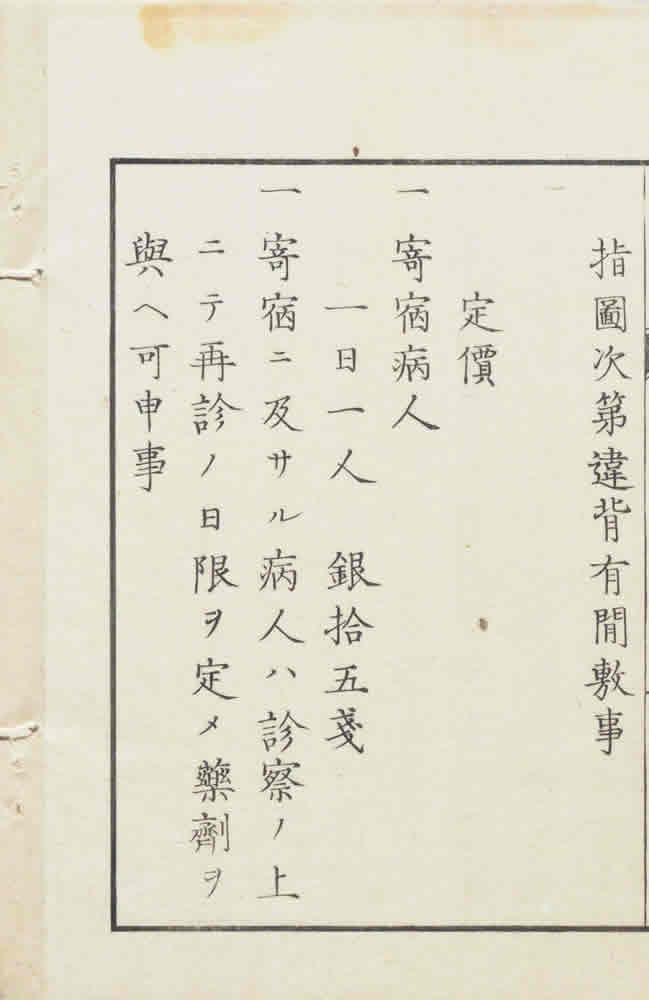 指圖次第違背有間敷事
定價
一寄宿病人
一日一人　銀拾五戔
一寄宿ニ及サル病人ハ診察ノ上
ニテ再診ノ日限ヲ定メ藥劑ヲ
與ヘ可申事